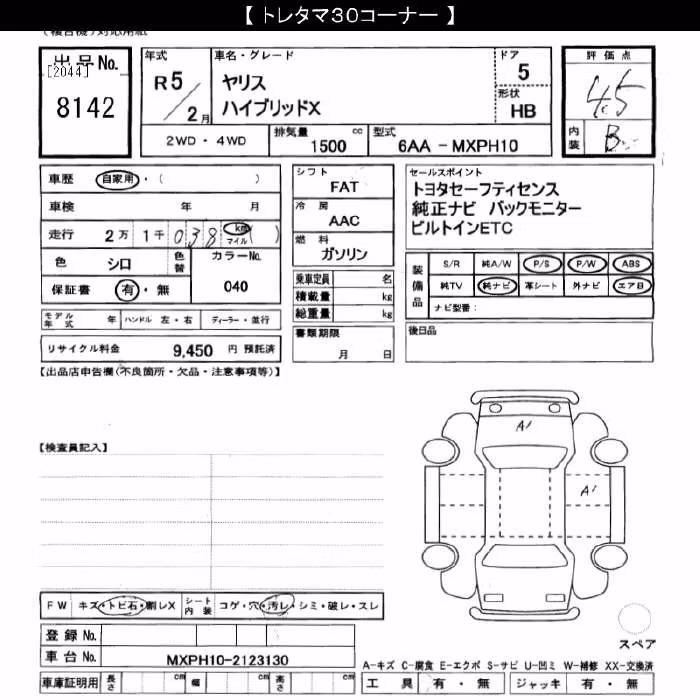 【 トレタマ30コーナー 】
(複合機)対応用紙
出品No.
[2044]
8142
年式
R5/2月
車名・グレード
ヤリス
ハイブリッドX
ドア
5
形状
HB
評価点
4.5
内装
B
2WD・4WD
排気量
1500 cc
型式
6AA-MXPH10
車歴 自家用・( )
車検 年 月
走行 2万 1千 038 km マイル ( )
色 シロ
色替
カラーNo.
040
保証書 有・無
シフト
FAT
冷房
AAC
燃料
ガソリン
乗車定員 名
積載量 kg
総重量 kg
書類期限
月 日
セールスポイント
トヨタセーフティセンス
純正ナビ バックモニター
ビルトインETC
装備品
S/R 純A/W P/S P/W ABS
純TV 純ナビ 革シート 外ナビ エアB
ナビ型番:
後日品
モデル年式 年 ハンドル 左・右 ディーラー・並行
リサイクル料金 9,450 円 預託済
【出品店申告欄(不良箇所・欠品・注意事項等)】
【検査員記入】
A1
A1
スペア
FW キズ・トビ石・割レX シート内装 コゲ・穴・汚レ・シミ・破レ・スレ
登録No.
車台No. MXPH10-2123130
車庫証明用 長さ cm 幅 cm 高さ cm
A-キズ C-腐食 E-エクボ S-サビ U-凹ミ W-補修 XX-交換済
工具 有・無 ジャッキ 有・無